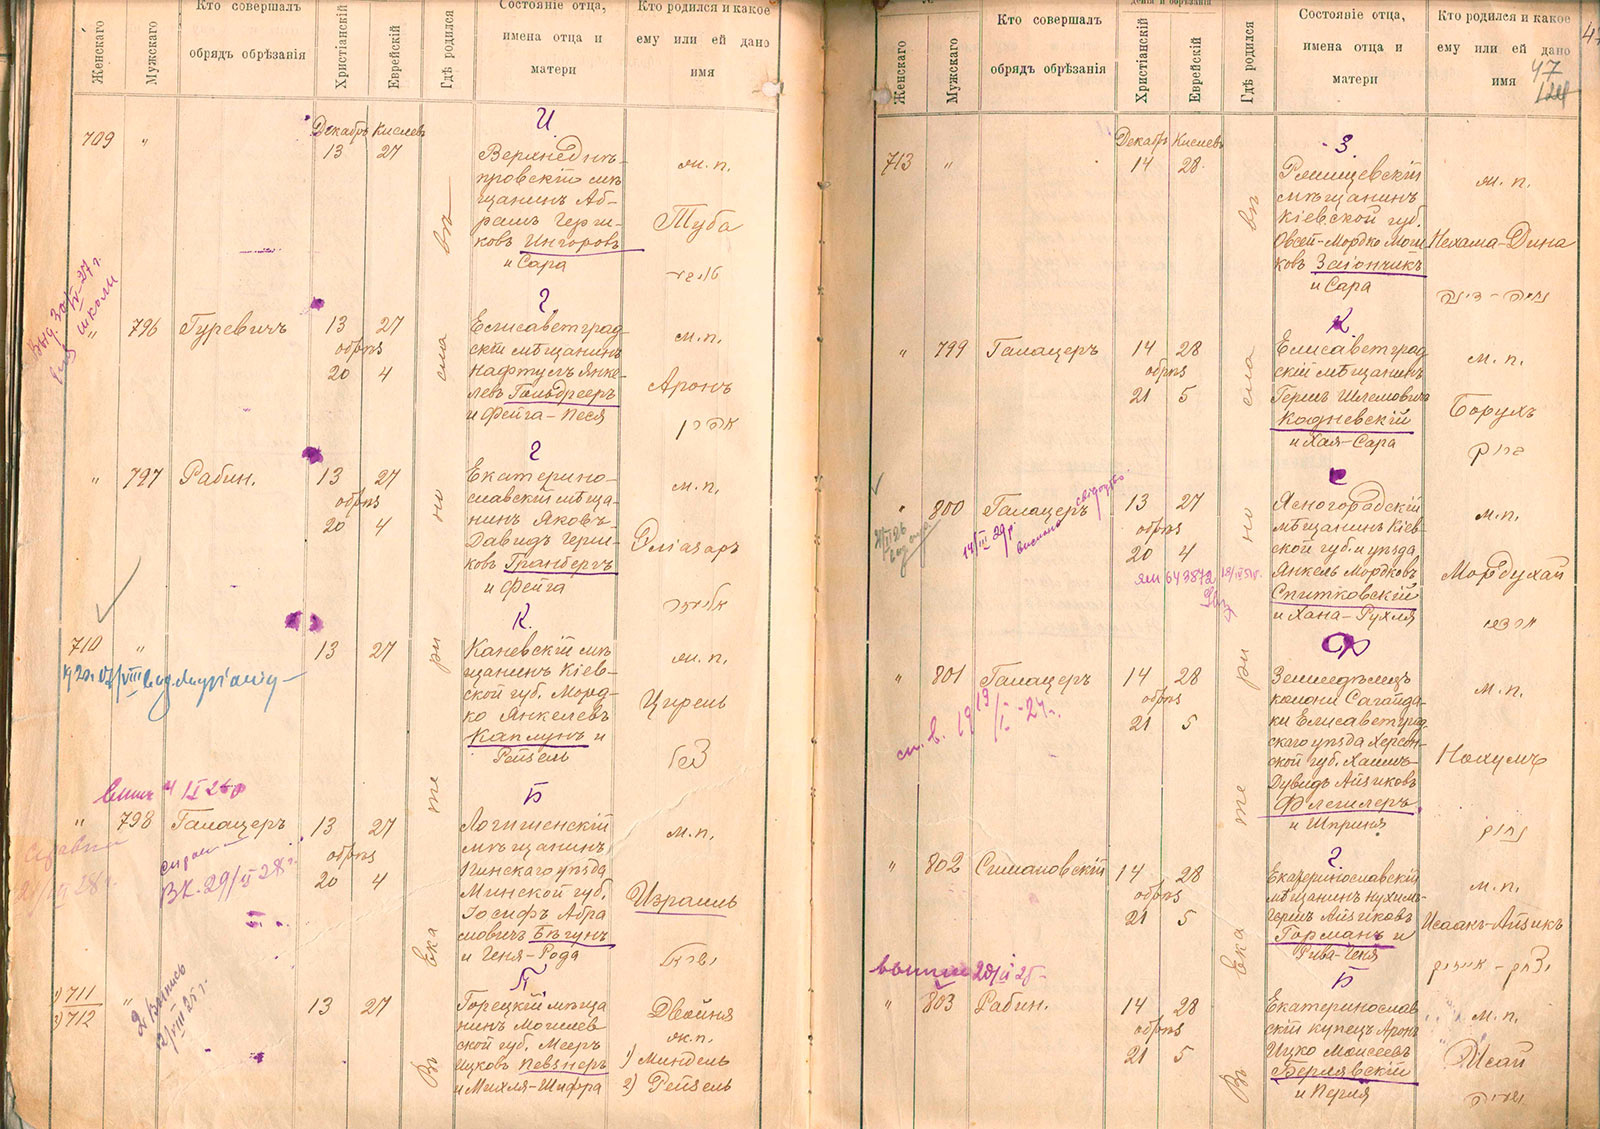 Женскаго
Мужскаго
Кто совершалъ
обрядъ обрѣзанія
Христіанскій
Еврейскій
Гдѣ родился
Состояніе отца,
имена отца и
матери
Кто родился и какое
ему или ей дано
имя
709 "
Декабрь Кислевъ
13 27
И
Верхнеднѣ-
провскій мѣ
щанинъ Аб-
рамъ Герш-
ковъ Ингоровъ
и Сара
ж. п.
Туба
" 796 Гуревичъ
13 27
обрѣз
20 4
Г
Елисаветград
скій мѣщанинъ
Нафтулъ Янке-
левъ Гольдфедеръ
и Фейга-Песя
м. п.
Аронъ
אהרן
" 797 Рабин.
13 27
обрѣз
20 4
Г
Екатерино-
славскій мѣща-
нинъ Яковъ-
Давидъ Герш-
ковъ Гринбергъ
и Фейга
м. п.
Эліазаръ
710 "
13 27
К.
Каневскій мѣ
щанинъ Кіев-
ской губ. Морд-
ко Янкелевъ
Каплунъ и
Рейзель
ж. п.
Цирель
" 798 Галацеръ
13 27
обрѣз
20 4
Б
Логишенскій
мѣщанинъ
Пинскаго уѣзда
Минской губ.
Іосифъ Абра
мовичъ Бѣгунъ
и Геня-Рода
м. п.
Израиль
1) 711
2) 712
"
13 27
П
Горецкій мѣща
нинъ Могилев
ской губ. Мееръ
Ицковъ Певзнеръ
и Михля-Шифра
Двойня
ж. п.
1) Миндель
2) Рейзель
Въ Екатеринославѣ
Женскаго
Мужскаго
Кто совершалъ
обрядъ обрѣзанія
Христіанскій
Еврейскій
Гдѣ родился
Состояніе отца,
имена отца и
матери
Кто родился и какое
ему или ей дано
имя
47
713 "
Декабрь Кислевъ
14 28
З
Ржищевскій
мѣщанинъ
Кіевской губ.
Овсей-Мордко Мош
ковъ Заіончикъ
и Сара
ж. п.
Нехама-Дина
" 799 Галацеръ
14 28
обрѣз
21 5
К
Елисаветград
скій мѣщанинъ
Гершъ Шлемовичъ
Кодневскій
и Хая-Сара
м. п.
Борухъ
ברוך
" 800 Галацеръ
13 27
обрѣз
20 4
С
Ясногородскій
мѣщанинъ Кіев-
ской губ. и уѣзда
Янкель Мордковъ
Спитковскій
и Хана-Рухля
м. п.
Мордухай
מרדכי
" 801 Галацеръ
14 28
обрѣз
21 5
Ф
Земледѣлецъ
колоніи Сагайда-
ки Елисаветград
скаго уѣзда Херсон-
ской губ. Хаимъ-
Дувидъ Айзиковъ
Флегилеръ
и Шприня
м. п.
Нохумъ
" 802 Симановскій
14 28
обрѣз
21 5
Г.
Екатеринославскій
мѣщанинъ Нухимъ-
Гершъ Айзиковъ
Горманъ и
Рива-Геня
м. п.
Исаакъ-Айзикъ
" 803 Рабин.
14 28
обрѣз
21 5
Б
Екатеринослав
скій купецъ Аронъ
Ицко Моисеевъ
Берлявскій
и Перля
м. п.
Исай
Въ Екатеринославѣ